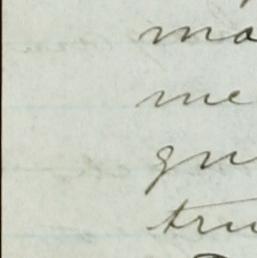 ma
me
gu
tru